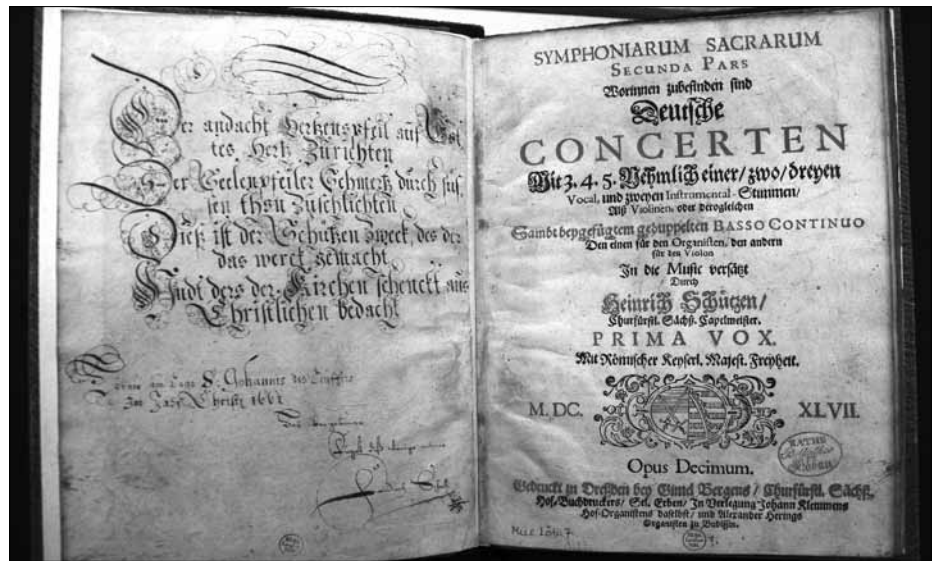 Der andacht Hertzenspfeil auf Got
tes Hertz Zurichten
Der Seelenpfeiler Schmertz durch süs
sen thon Zuschlichten
Dieß ist der Schützen Zweck, des der
das werck gemacht
Undt ders der Kirchen schenckt aus
Christlichen bedacht
S. Johannis des
Im Jahr Christi
SYMPHONIARUM SACRARUM
SECUNDA PARS
Worinnen zubefinden sind
Deutsche
CONCERTEN
Mit 3. 4. 5. Nehmlich einer/ zwo/ dreyen
Vocal, und zweyen Instrumental-Stimmen/
Alß Violinen, oder derogleichen
Sambt beygefügtem geduppelten BASSO CONTINUO
Den einen für den Organisten, den andern
für den Violon
In die Music versätzt
Durch
Heinrich Schützen/
Churfürstl. Sächß. Capelmeister.
PRIMA VOX.
Mit Römischer Keyserl. Majest. Freyheit.
M. DC. XLVII.
Opus Decimum.
Gedruckt in Dreßden bey Gimel Bergens/ Churfürstl. Sächß.
Hof-Buchdruckers/ Sel. Erben/ In Verlegung Johann Klemmens
Hof-Organistens daselbst/ und Alexander Herings
Organisten zu Budißin.